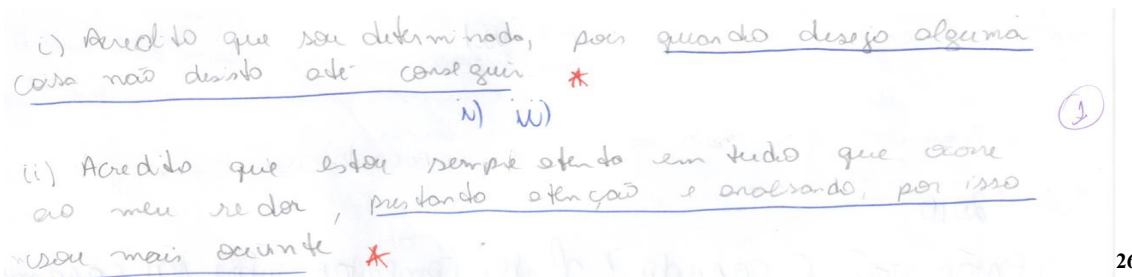 i) Acredito que sou determinado, pois quando desejo alguma
coisa não desisto até conseguir *
i) iii)
1
(ii) Acredito que estou sempre atento em tudo que ocorre
ao meu redor, prestando atenção e analisando, por isso
sou mais ouvinte *
20